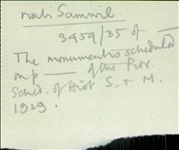 nabi Samwil
3959/35 of
The monument is scheduled
m p ___ of the Prov.
Sched. of Hist S. & M.
1929.